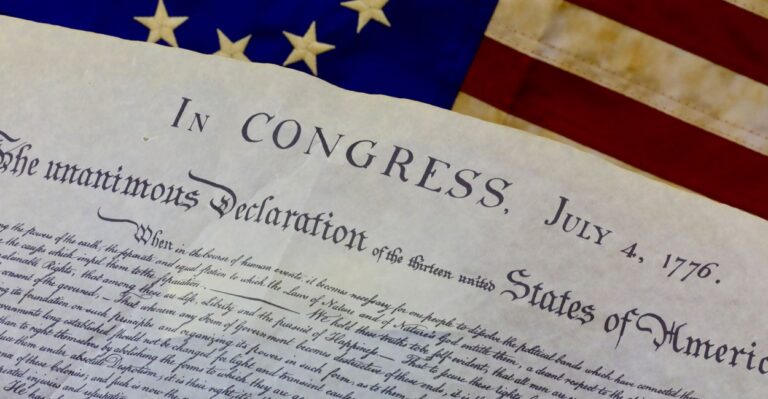 In CONGRESS, July 4, 1776.
The unanimous Declaration of the thirteen united States of Americ
When in the Course of human events, it becomes necessary for one people to dissolve the political bands which have connected them
the powers of the earth, the separate and equal station to which the Laws of Nature and of Nature's God entitle them, a decent respect to the
the causes which impel them to the separation. We hold these truths to be self-evident, that all men are
Rights, that among these are Life, Liberty and the pursuit of Happiness.— That to secure these rights,
consent of the governed, — That whenever any Form of Government becomes destructive of these ends, it is
its foundation on such principles and organizing its powers in such form, as to them
long established should not be changed for light and transient causes
to right themselves by abolishing the forms to which they are
them under absolute Despotism, it is their right
of these Colonies; and such is now the
injuries and usurpations
He has